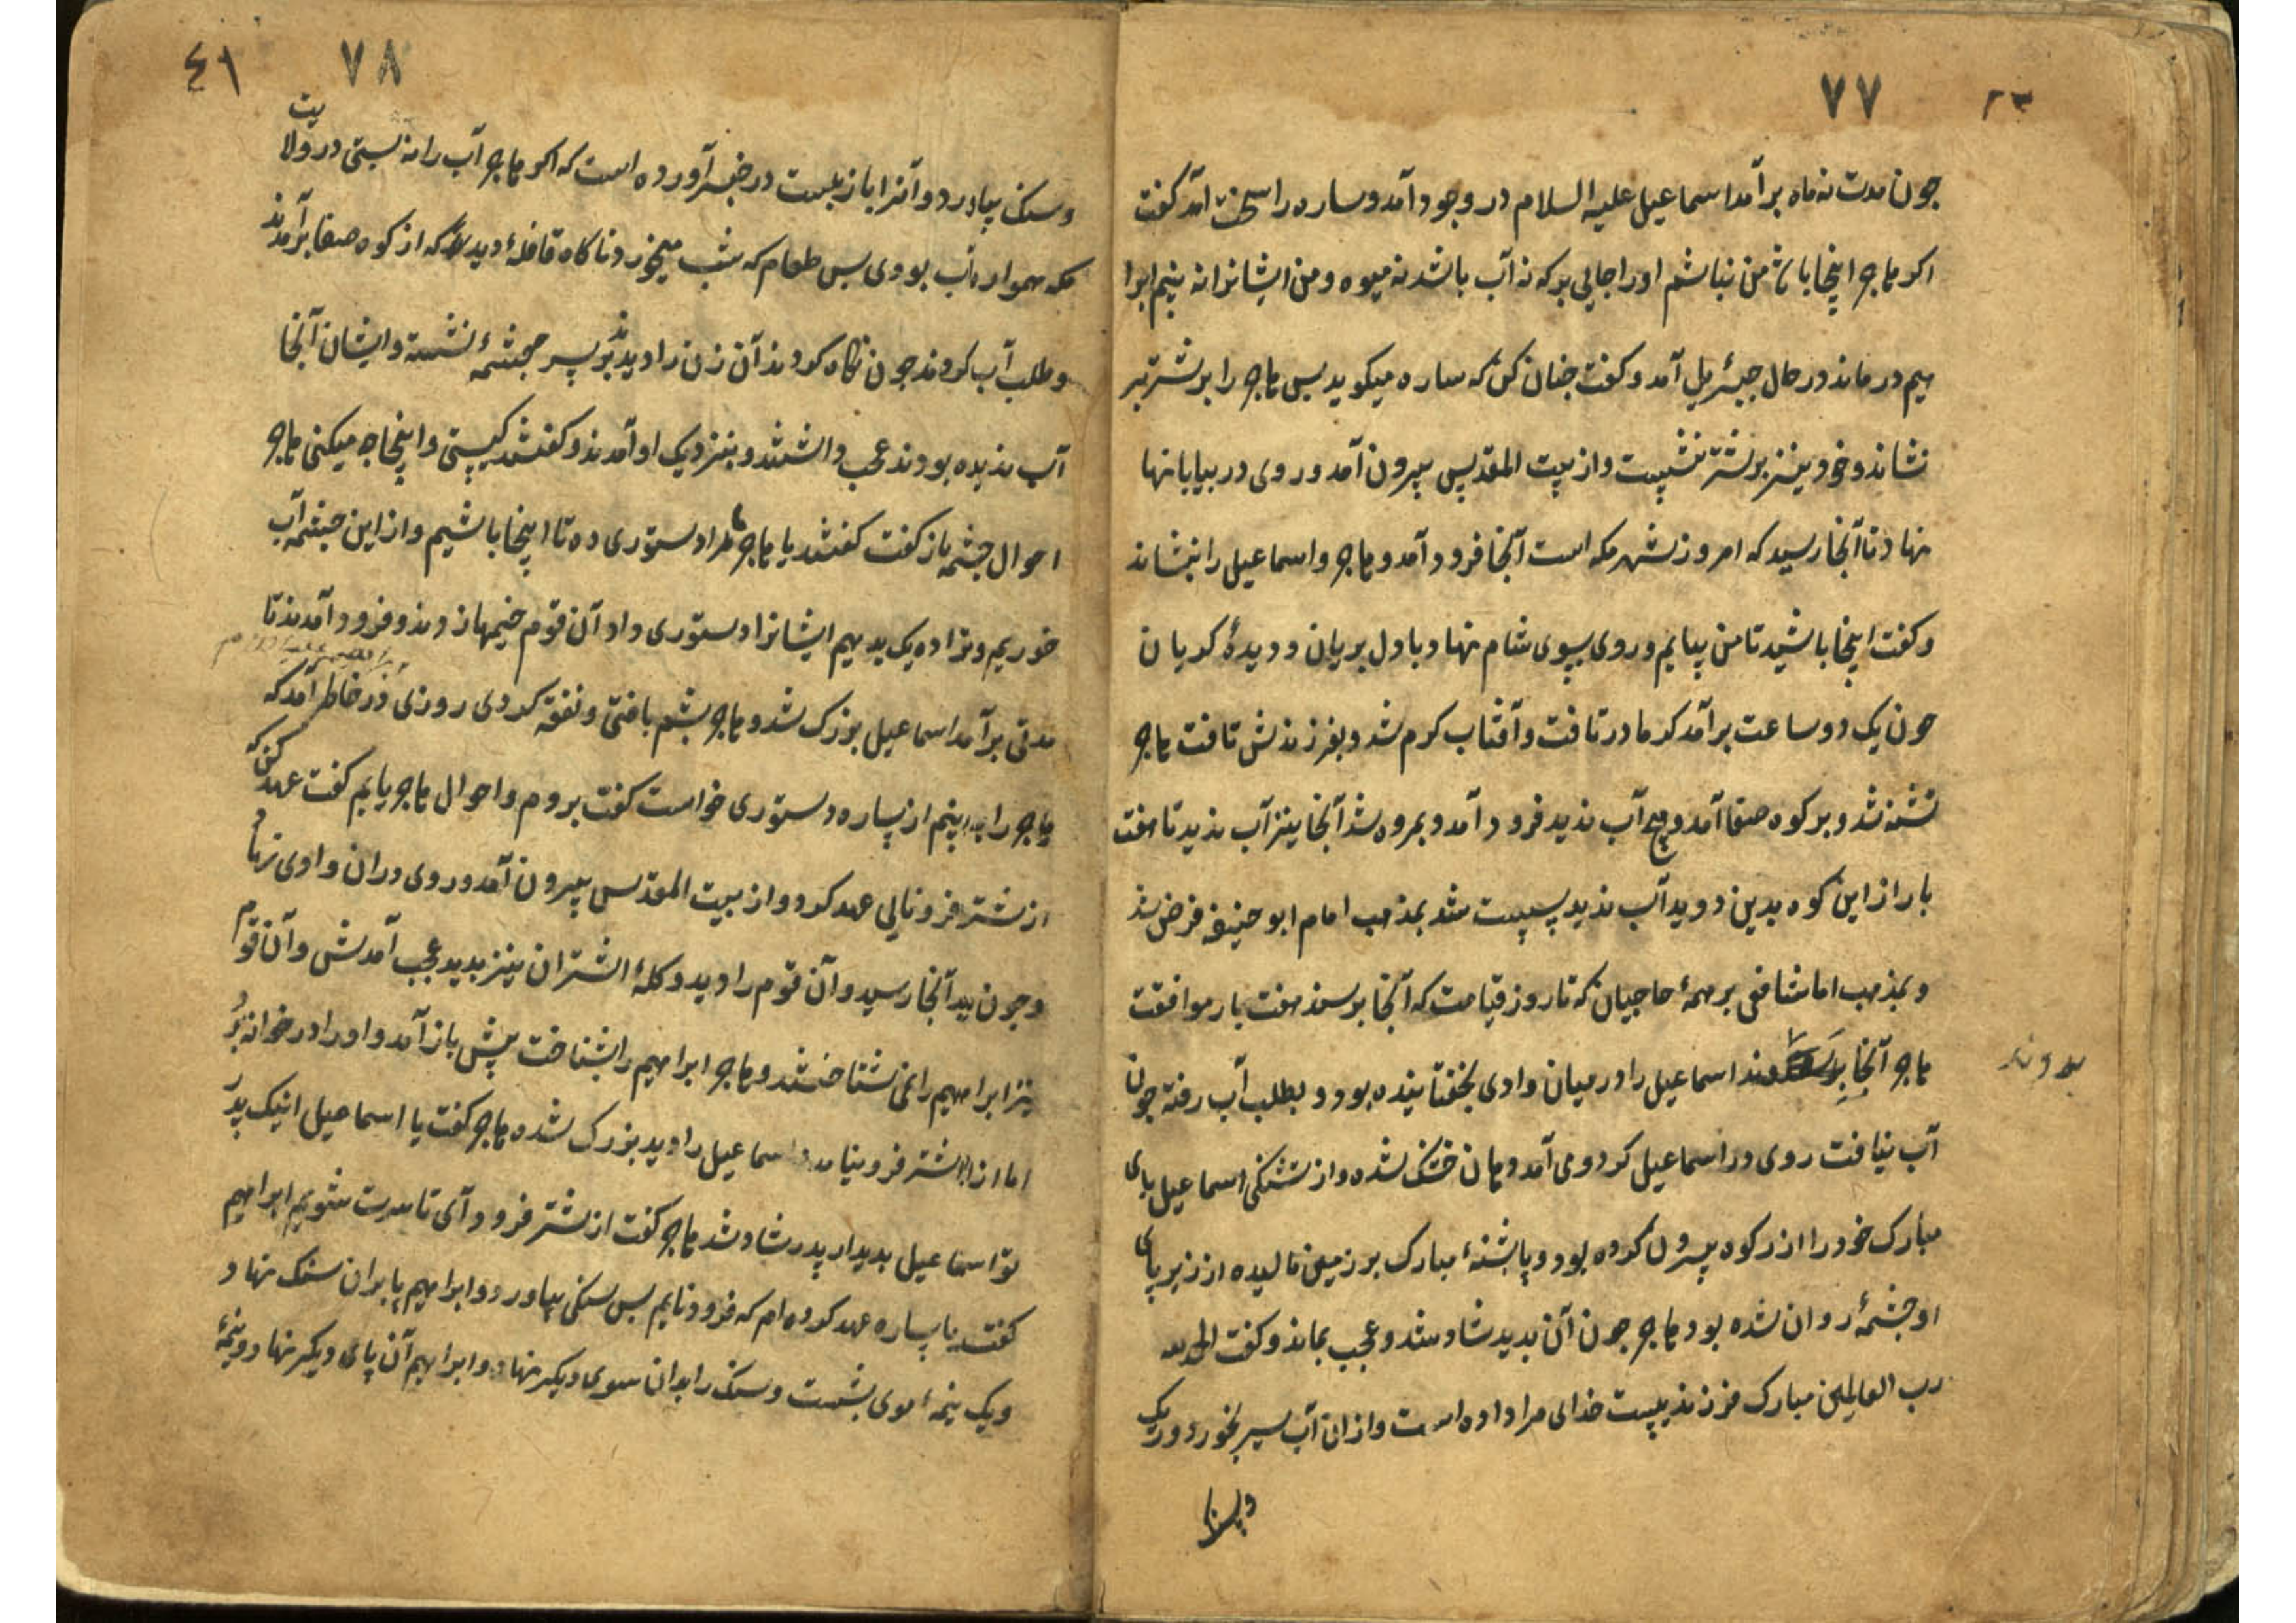 ٧٧
جون مدت نه ماه برآمد اسماعیل علیه السلام در وجود آمد و ساره را سخت آمد کفت
اکر هاجر اینجا باشد من نباشم او را جایی بر که نه آب باشد نه میوه و من ایشانرا نه بینم ابرا
هیم درماند در حال جبرئیل آمد و کفت جنان کن که ساره میکوید بس هاجر را بر شتر بر
نشاند و خود نیز بر شتر نشست و از بیت المقدس بیرون آمد و روی در بیابانها
نهاد تا آنجا رسید که امروز شهر مکه است آنجا فرود آمد و هاجر و اسماعیل را بنشاند
و کفت اینجا باشید تا من بیایم و روی بسوی شام نهاد با دل بریان و دیدهٔ کریان
جون یک دو ساعت برآمد کرما در تافت و آفتاب کرم شد و بفرزندش تافت هاجر
تشنه شد و بر کوه صفا آمد و هیچ آب ندید فرود آمد و بمروه شد آنجا نیز آب ندید تا هفت
بار از این کوه بدین دوید آب ندید بس سنت شد بمذهب امام ابو حنیفه فرض شد
و بمذهب امام شافعی بر همهٔ حاجیان که تا روز قیامت که آنجا برسند هفت بار موافقت
هاجر آنجا بدوند اسماعیل را در میان وادی بخفتانیده بود و بطلب آب رفته جون
بدوند
آب نیافت روی در اسماعیل کرد و می آمد دهان خشک شده و از تشنکی اسماعیل پای
مبارک خود را از رکوه بیرون کرده بود و پاشنهٔ مبارک بر زمین مالیده از زیر پای
او جشمهٔ روان شده بود هاجر جون آن بدید شاد شد و عجب بماند و کفت الحمد لله
رب العالمین مبارک فرزندیست خدای مرا داده است و از ان آب سیر بخورد و ریک
و سنک
٧٨
٤١
و سنک بیاورد و آنرا باز بست در خبر آورده است که اکر هاجر آب را نه بستی در ولایت
مکه هموار آب بودی بس طعام که شب میخورد ناکاه قافلهٔ دید که از کوه صفا برآمدند
و طلب آب کردند جون نکاه کردند آن زن را دیدند بر سر جشمهٔ نشسته و ایشان آنجا
آب ندیده بودند عجب داشتند و بنزدیک او آمدند و کفتند کیستی و اینجا چه میکنی هاجر
احوال جشمه باز کفت کفتند یا هاجر ما را دستوری ده تا اینجا باشیم و از این جشمه آب
خوریم و ترا ده یک بدهیم ایشانرا دستوری داد آن قوم خیمها زدند و فرود آمدند تا
مدتی برآمد اسماعیل بزرک شد و هاجر پشم بافتی و نفقه کردی روزی در خاطر آمد که
هاجر را به بینم از ساره دستوری خواست کفت بروم و احوال هاجر یابم کفت عهد کن که
از شتر فرو نایی عهد کرد و از بیت المقدس بیرون آمد و روی دران وادی نهاد
و جون آنجا رسید و آن قوم را دید و کلهٔ اشتران نیز بدید عجب آمدش و آن قوم
نیز ابراهیم را نمی شناختند و هاجر ابراهیم را بشناخت پیش باز آمد و او را در خانه برد
اما از شتر فرو نیامد اسماعیل را دید بزرک شده هاجر کفت یا اسماعیل اینک پدر
تو اسماعیل بدیدار پدر شاد شد هاجر کفت از شتر فرود آی تا سرت شویم ابراهیم
کفت با ساره عهد کرده ام که فرود نایم بس سنکی بیاورد و ابراهیم پا بران سنک نهاد
و یک نیمهٔ موی بشست و سنک را بدان سوی دیکر نهاد و ابراهیم آن پای دیکر نهاد و نیمهٔ